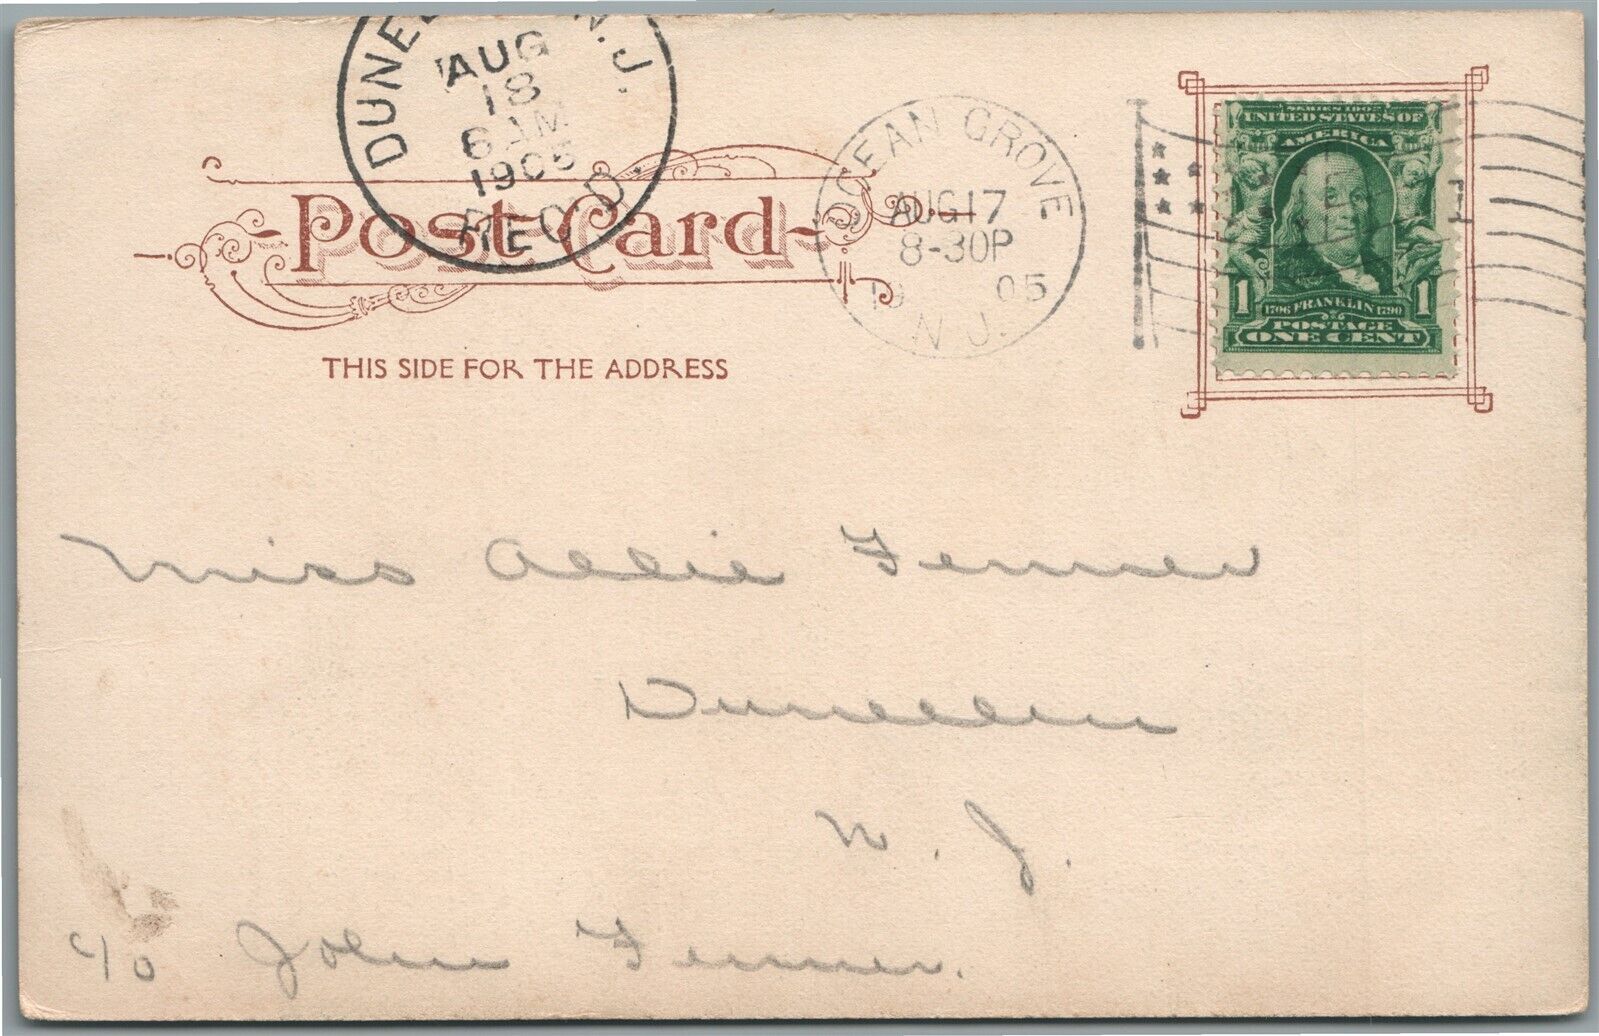 DUNE N.J.
AUG
18
6 AM
1905
REC'D.
OCEAN GROVE
AUG 17
8-30P
19 05
N.J.
SERIES 1902
UNITED STATES OF
AMERICA
1 1
1706 FRANKLIN 1790
POSTAGE
ONE CENT
Post Card
THIS SIDE FOR THE ADDRESS
Miss Allie Fenner
Dunellen
N. J.
c/o John Fenner.